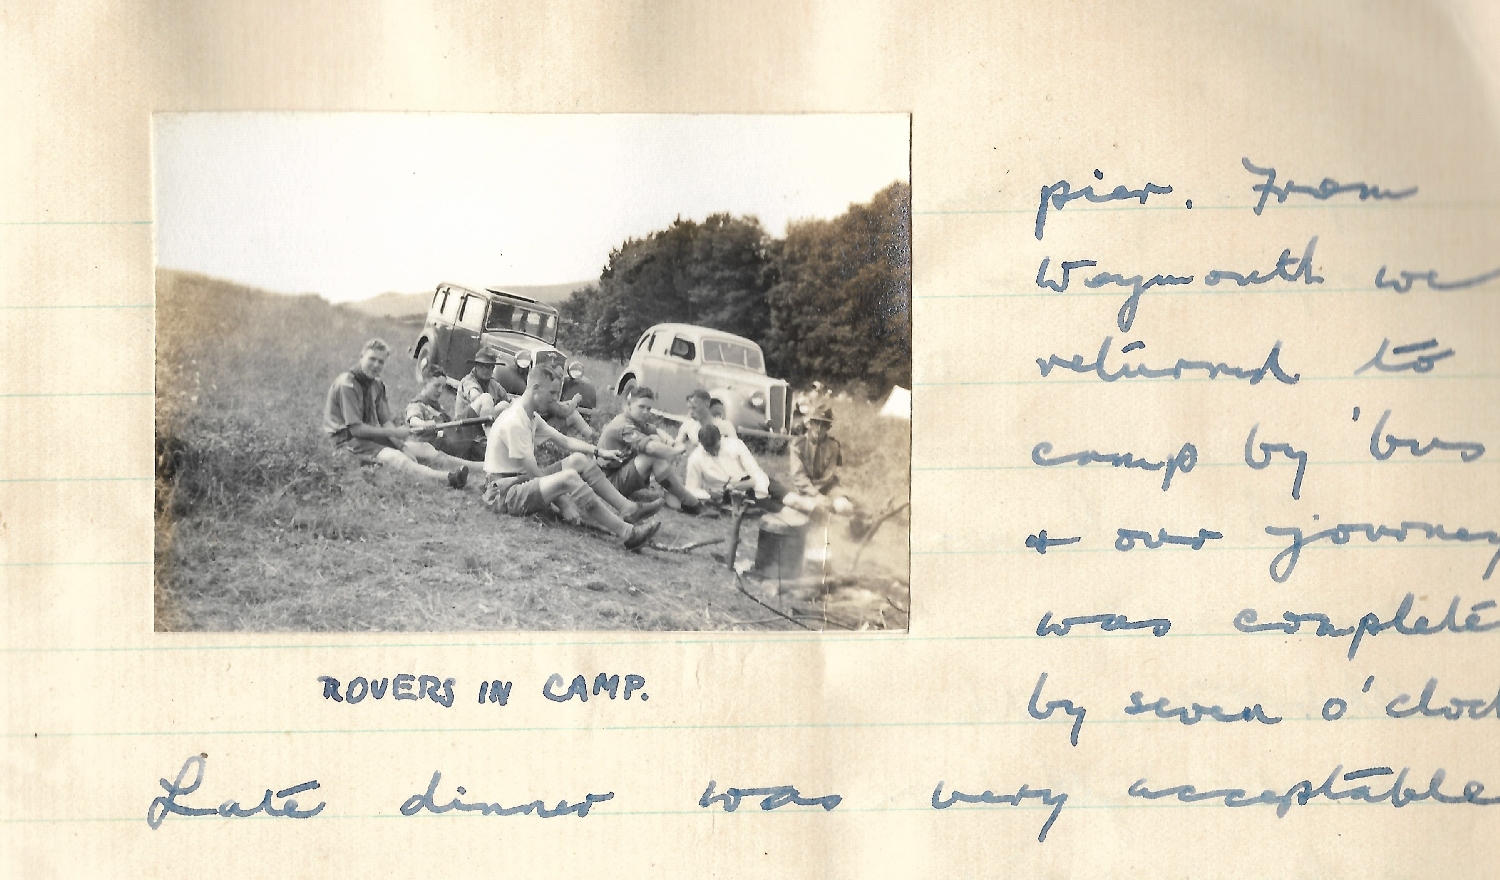 pier. From
Waymouth we
returned to
camp by 'bus
& our journey
was complete
by seven o'cloc
ROVERS IN CAMP.
Late dinner was very acceptable